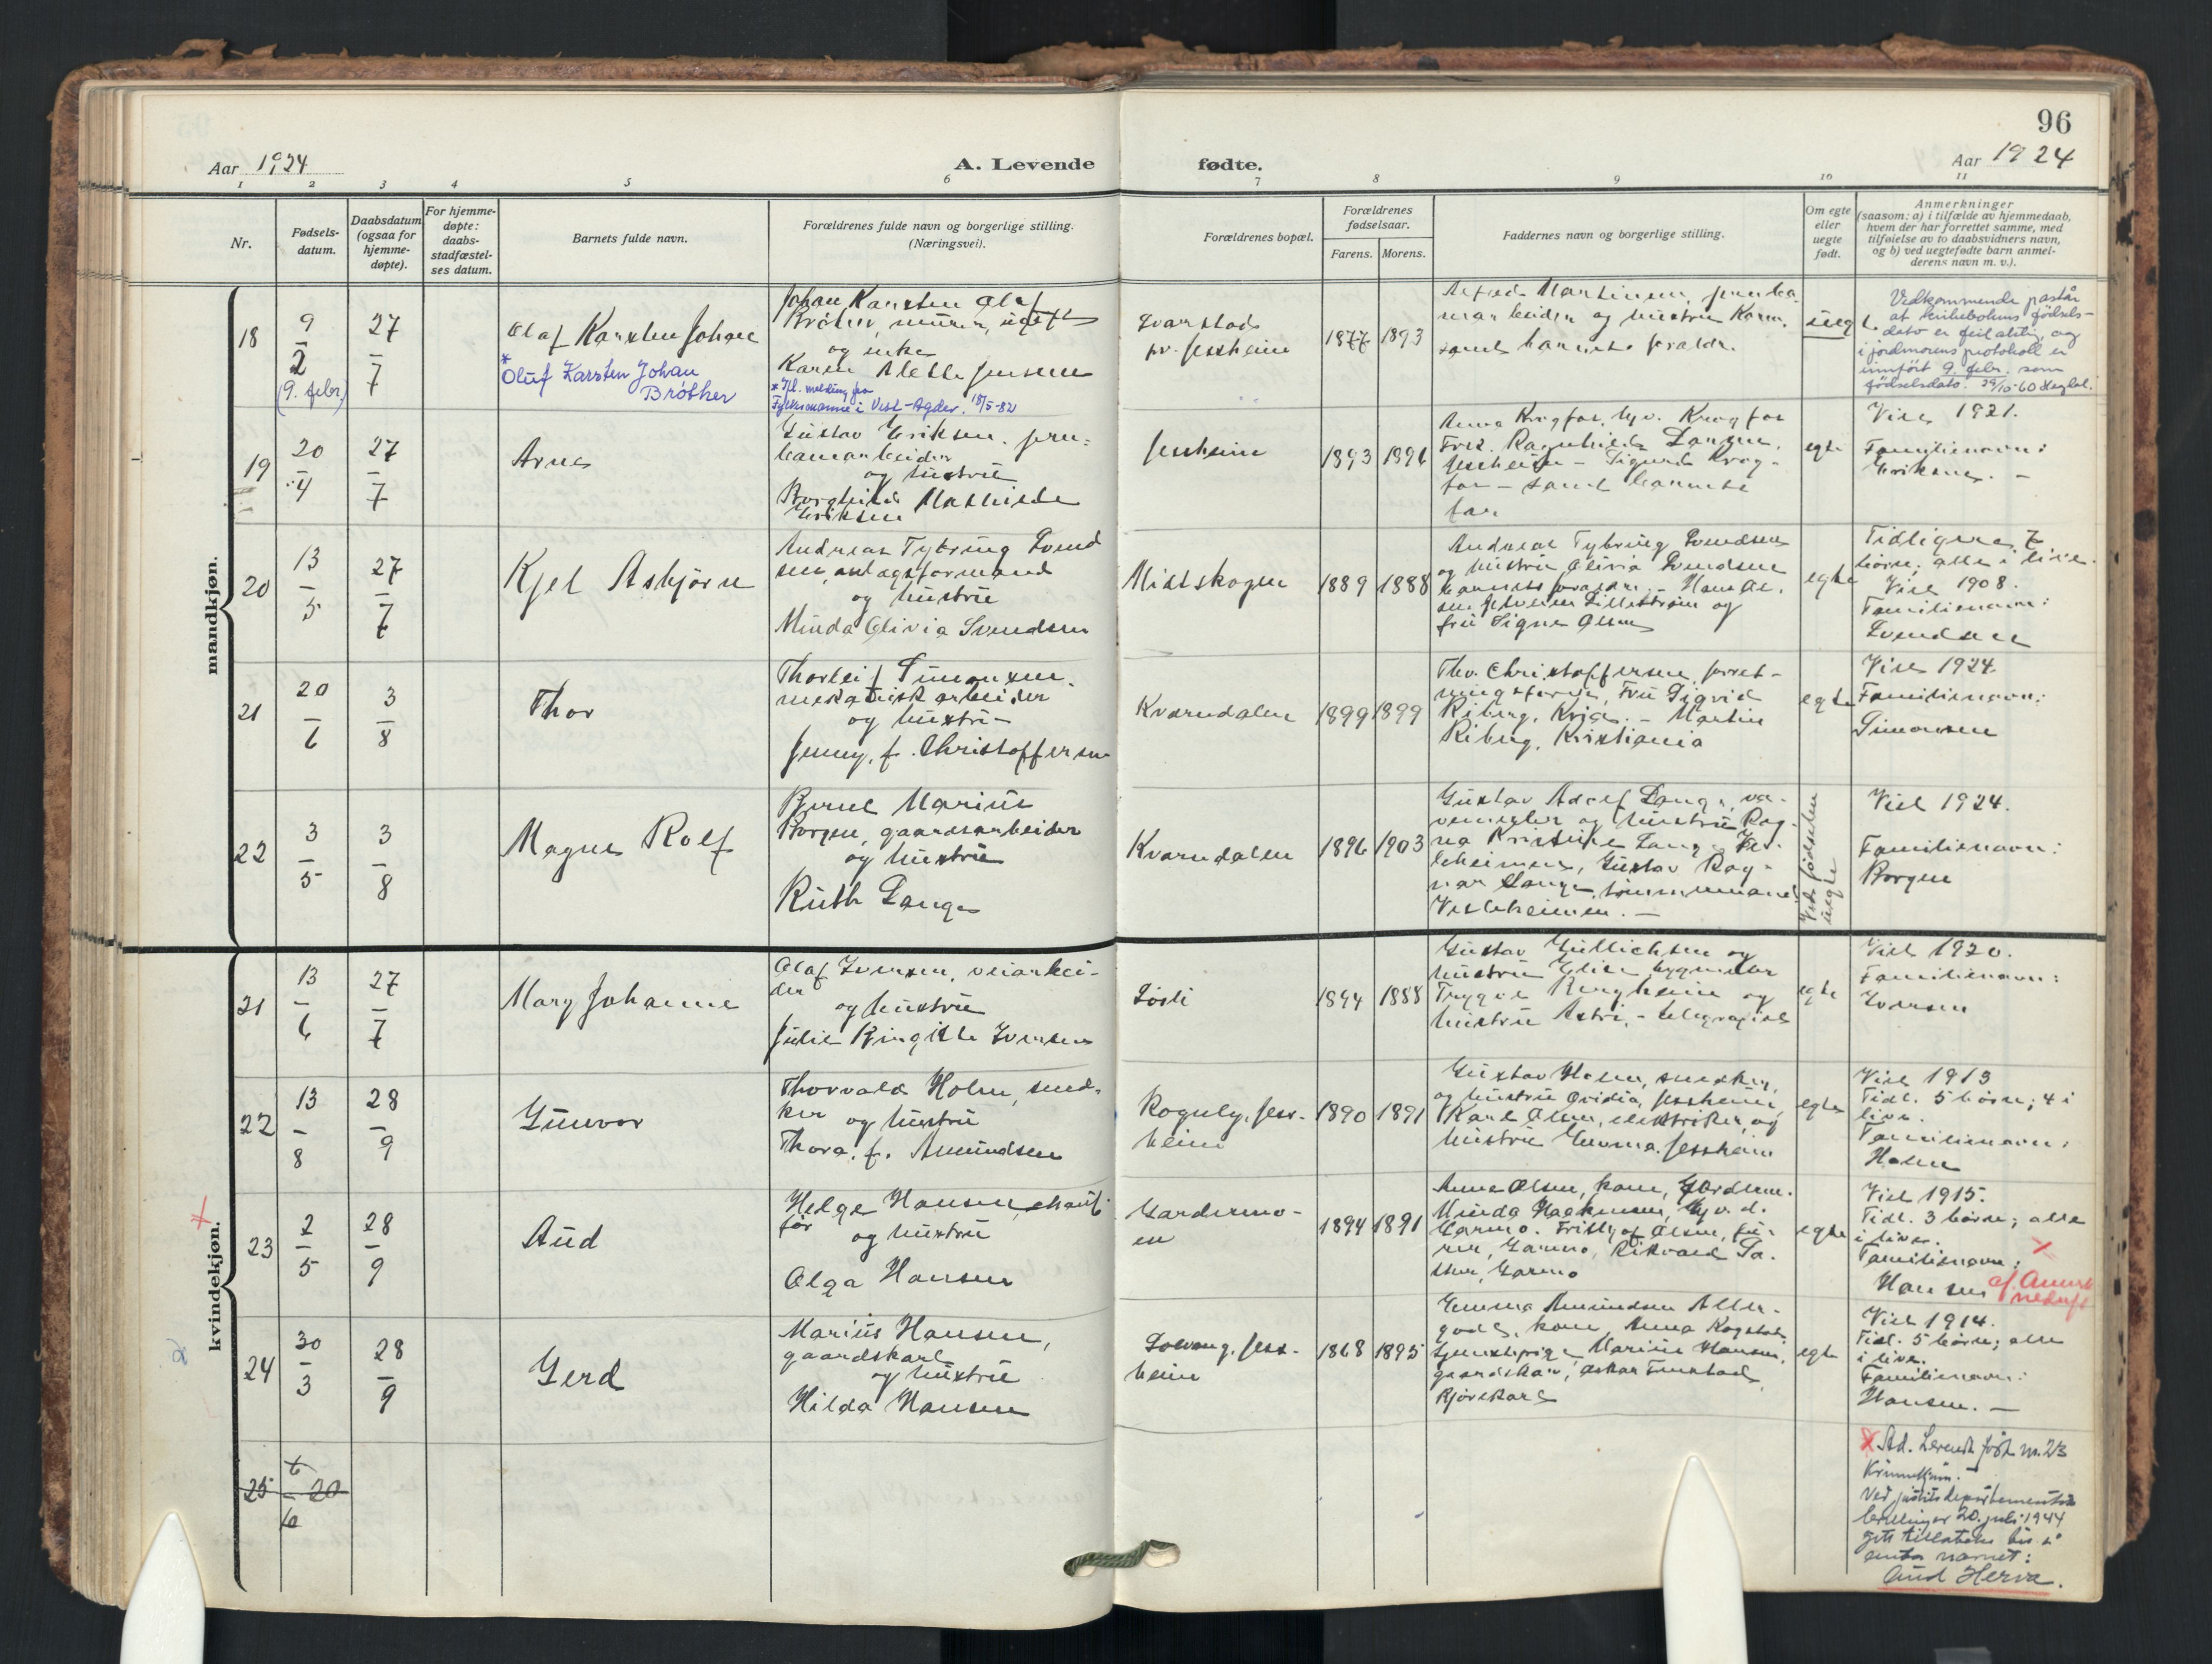 96
Aar 1924
A. Levende fødte.
Aar 1924
1 2 3 4 5 6 7 8 9 10 11
Nr.
Fødsels-
datum.
Daabsdatum
(ogsaa for
hjemme-
døpte).
For hjemme-
døpte:
daabs-
stadfæstel-
ses datum.
Barnets fulde navn.
Forældrenes fulde navn og borgerlige stilling.
(Næringsvei).
Forældrenes bopæl.
Forældrenes
fødselsaar.
Farens. Morens.
Faddernes navn og borgerlige stilling.
Om egte
eller
uegte
født.
Anmerkninger
(saasom: a) i tilfælde av hjemmedaab,
hvem der har forrettet samme, med
tilføielse av to daabsvidners navn,
og b) ved uegtefødte barn anmel-
derens navn m. v.).
mandkjøn.
18
9/2
(9. febr.)
27/7
Olaf Karsten Johan
* Oluf Karsten Johan
Bröther
Johan Karsten Olaf
Bröther, murer, ugift
og enke
Karen Alette Jensen
* Jfl. melding fra
Fylkesmannen i Vest-Agder. 18/5-82
pr. Jessheim
1877 1893
samt barnets foraldr.
uegt.
Vedkommende påstår
at kirkebokens fødsels-
dato er feilaktig, og
i jordmorens protokoll er
innført 9. febr. som
fødselsdato. 29/10-60
19
20/4
27/7
Arne
Gustav Eriksen, jern-
banearbeider
og hustru
Borghild Mathilde
Eriksen
Jessheim
1893 1896
Anna Krogfos, Gv. Krogfos
Frk. Ragnhild Larsen,
Jessheim - Sigurd Krog-
fos - samt barnets
far
egte
Viet 1921.
Familienavn:
Eriksen. -
20
13/5
27/7
Kjel Asbjörn
Andreas Tybring Svend
sen, anlægsformand
og hustru
Minda Olivia Svendsen
Mistskogen
1889 1888
Andreas Tybring Svendsen
og hustru Olivia Svendsen
barnets foraldr. - Hans Ol-
sen, Lilleström og
fru Signe Olsen
egte
Tidligere 7
börn; alle i live.
Viet 1908.
Familienavn:
Svendsen
21
20/6
3/8
Thor
Thorleif Simonsen,
mekanisk arbeider
og hustru -
Jenny, f. Christoffersen
Kværndalen
1899 1899
Thv. Christoffersen, forret-
ningsförer, Fru Sigrid
Riberg, Krja. - Martin
Riberg, Kristiania
egte
Viet 1924.
Familienavn:
Simonsen
22
3/5
3/8
Magne Rolf
Bernt Marius
Borgen, gaardsarbeider
og hustru
Ruth Lange
Kværndalen
1896 1903
Gustav Adolf Lange, va-
og hustru Rag-
na Kristine Lange, Ves-
leheimen, Gustav Rag-
nar Lange, tömmermand
Vesleheimen. -
Ved fødselen
uegte
Viet 1924.
Familienavn:
Borgen
kvindekjøn.
21
13/6
27/7
Mary Johanne
Olaf Iversen, veiarbei-
der
og hustru
Julie Birgitte Iversen
Lösli
1894 1888
Gustav Gullichsen og
hustru Elise,
Trygve Bergheim og
hustru Astri, - telegrafist
egte
Viet 1920.
Familienavn:
Iversen
22
13/8
28/9
Gunvor
Thorvald Holm, sned-
ker
og hustru
Thora, f. Amundsen
Rognly, Jess-
heim
1890 1891
Gustav Holm, snedker,
og hustru Ovidia, Jessheim,
Karl Olsen, elektriker, og
hustru Emma, Jessheim
egte
Viet 1913
Tidl. 5 börn; 4 i
live.
Familienavn:
Holm
23
2/5
28/9
Aud
Helge Hansen, chauf-
för
og hustru
Olga Hansen
Gardermo-
en
1894 1891
Anna Olsen, kone,
Minda Haakensen, Gv. d.
Garmo. Fritlyof Olsen, fu-
rer, Garmo, Rikvard
Garmo
egte
Viet 1915.
Tidl. 3 börn; alle
i live.
Familienavn:
Hansen
24
30/3
28/9
Gerd
Marius Hansen,
gaardskarl
og hustru
Hilda Hansen
Solvang, Jess-
heim
1868 1895
Emma Amundsen Aller-
godt, kone, Anna Rogstad,
Marius Hansen,
gaardskar, Oskar
Kjörekarl
egte
Viet 1914.
Tidl. 5 börn; alle
i live.
Familienavn:
Hansen. -
25
20
6
X Ad. Levende født nr. 23
Kvinnekjøn. -
Ved justitsdepartementets
bevillinger 20. juli 1944
gitt tillatelse til å
anta navnet:
Aud Herva.